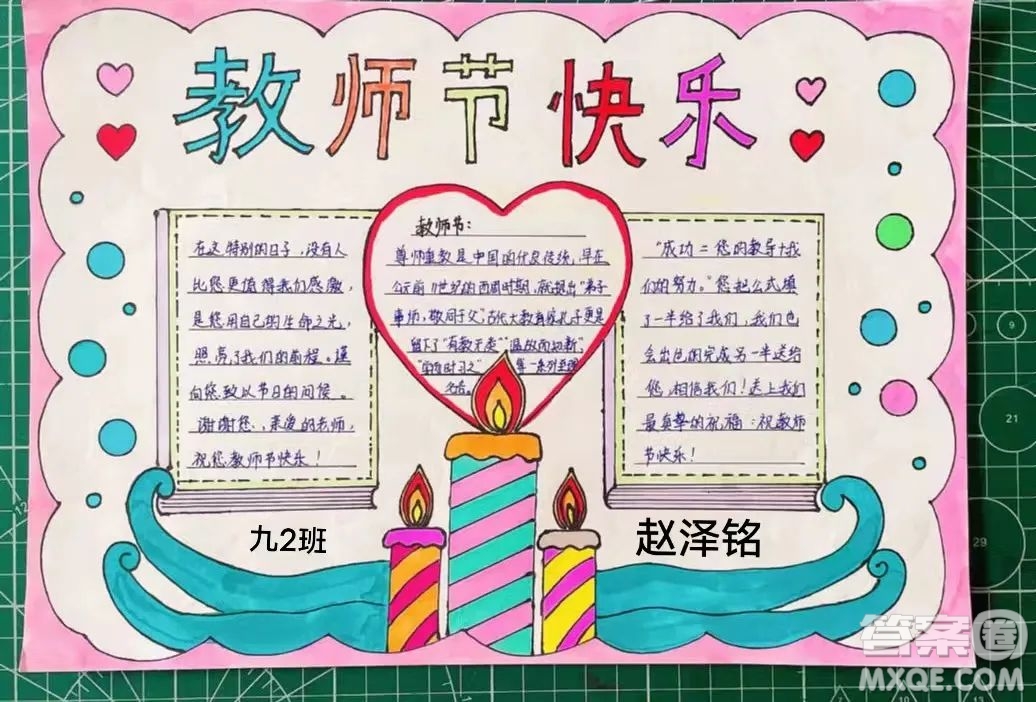 教师节快乐
在这特别的日子，没有人
比您更值得我们感激，
是您用自己的生命之光，
照亮了我们的前程。谨
向您致以节日的问候。
谢谢您、亲爱的老师，
祝您教师节快乐！
教师节：
尊师重教是中国的优良传统，早在
公元前11世纪的西周时期，就提出"弟子
事师，敬同于父"，古代大教育家孔子更是
留下了"有教无类""温故而知新"，
"学而时习之" 等一系列至理
名言。
"成功＝您的教导＋我
们的努力。"您把公式填
了一半给了我们，我们也
会出色的完成另一半送给
您，相信我们！送上我们
最真挚的祝福：祝教师
节快乐！
九2班
赵泽铭
答案圈
MXQE.COM
9
21
29
12
10
13